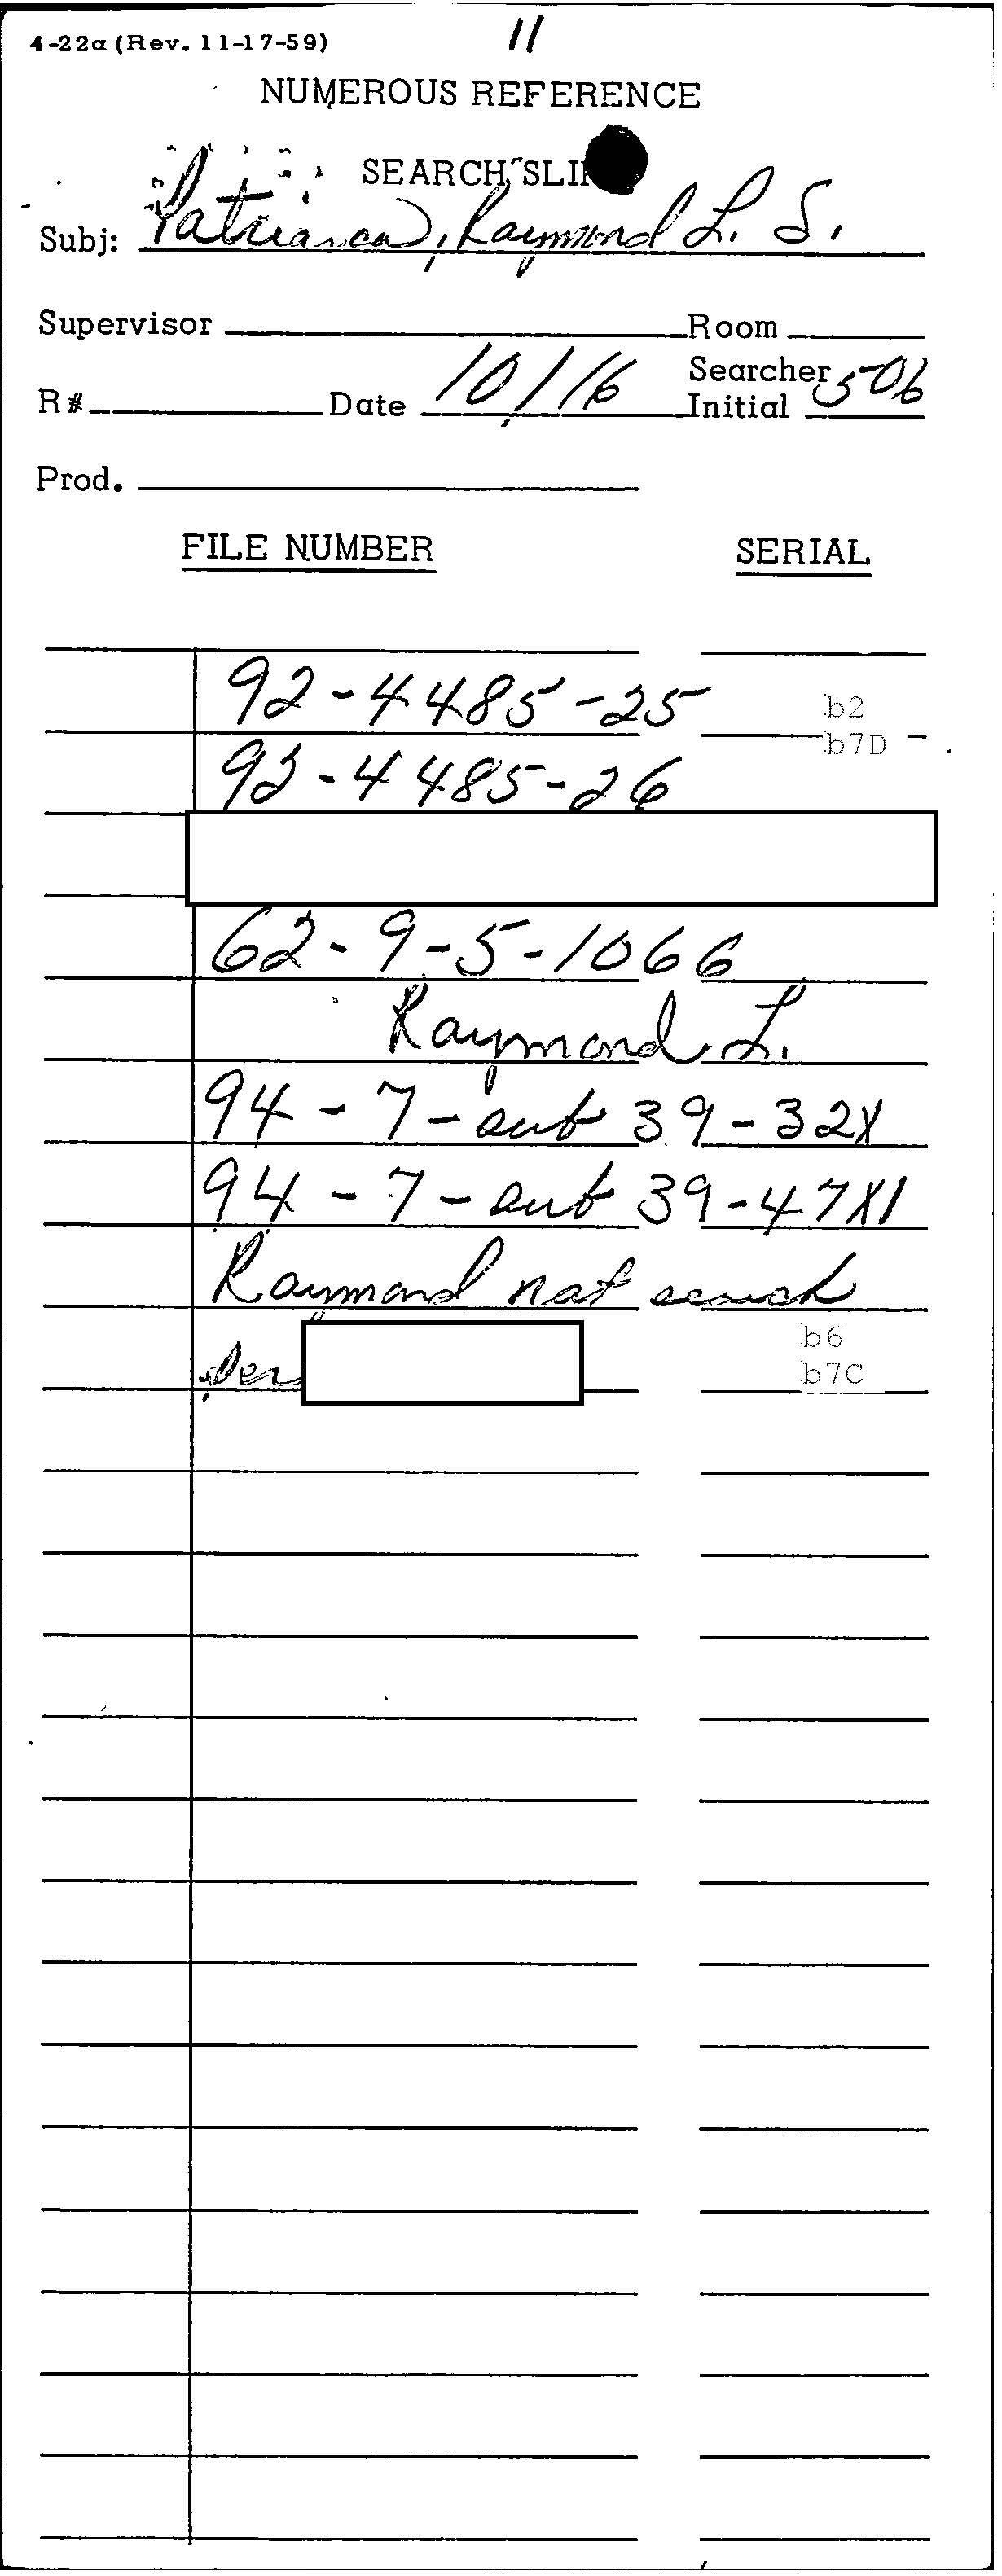 4-22a (Rev. 11-17-59)
11
NUMEROUS REFERENCE
SEARCH SLIP
Subj: Patriarca, Raymond L. S.
Supervisor Room
R# Date 10/16 Searcher Initial 506
Prod.
FILE NUMBER SERIAL
92-4485-25 b2
b7D
92-4485-26
62-9-5-1066
Raymond L.
94-7-sub 39-32X
94-7-sub 39-47X1
Raymond not search
per b6
b7C